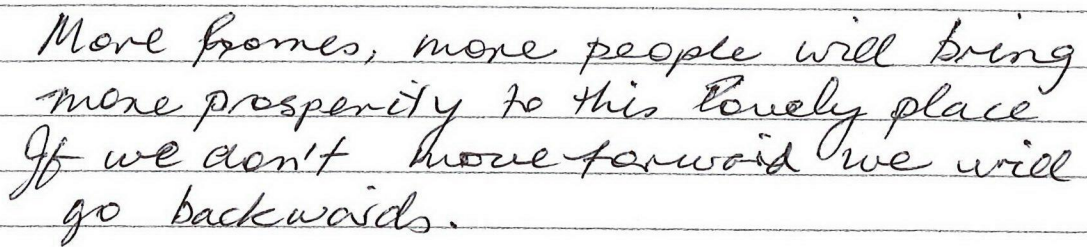 More homes, more people will bring
more prosperity to this lovely place
If we don't move forward we will
go backwards.